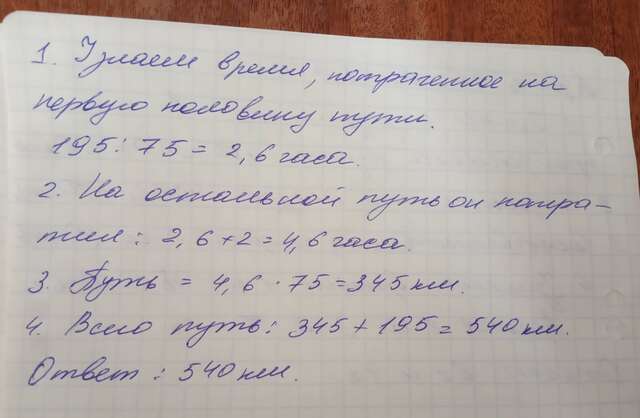 1. Узнаем время, потраченное на
первую половину пути.
195 : 75 = 2,6 часа.
2. На остальной путь он потра-
тил : 2,6 + 2 = 4,6 часа.
3. Путь = 4,6 · 75 = 345 км.
4. Всего путь : 345 + 195 = 540 км.
Ответ : 540 км.